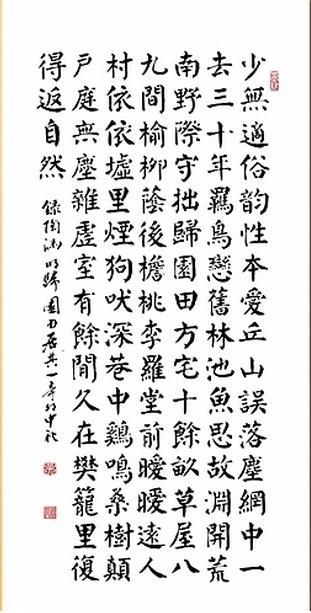 少無適俗韵性本愛丘山誤落塵網中一
去三十年羈鳥戀舊林池魚思故淵開荒
南野際守拙歸園田方宅十餘畝草屋八
九間榆柳蔭後檐桃李羅堂前曖曖遠人
村依依墟里煙狗吠深巷中鷄鳴桑樹顛
戶庭無塵雜虛室有餘閒久在樊籠里復
得返自然
錄陶淵明歸園田居其一